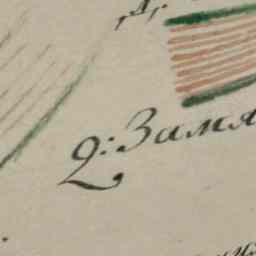 „Д.
2: Замя